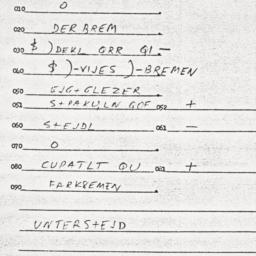 010 0
020 DER BREM
030 $ ) DEKL GRR GI -
040 $ ) -VIJES ) -BREMEN
050 EJG+GLEZER
051 S+PAKULN GOF 052 +
060 S+EJDL 061 -
070 0
080 CUPATLT QU 081 +
090 FARKREMEN
UNTERS+EJD